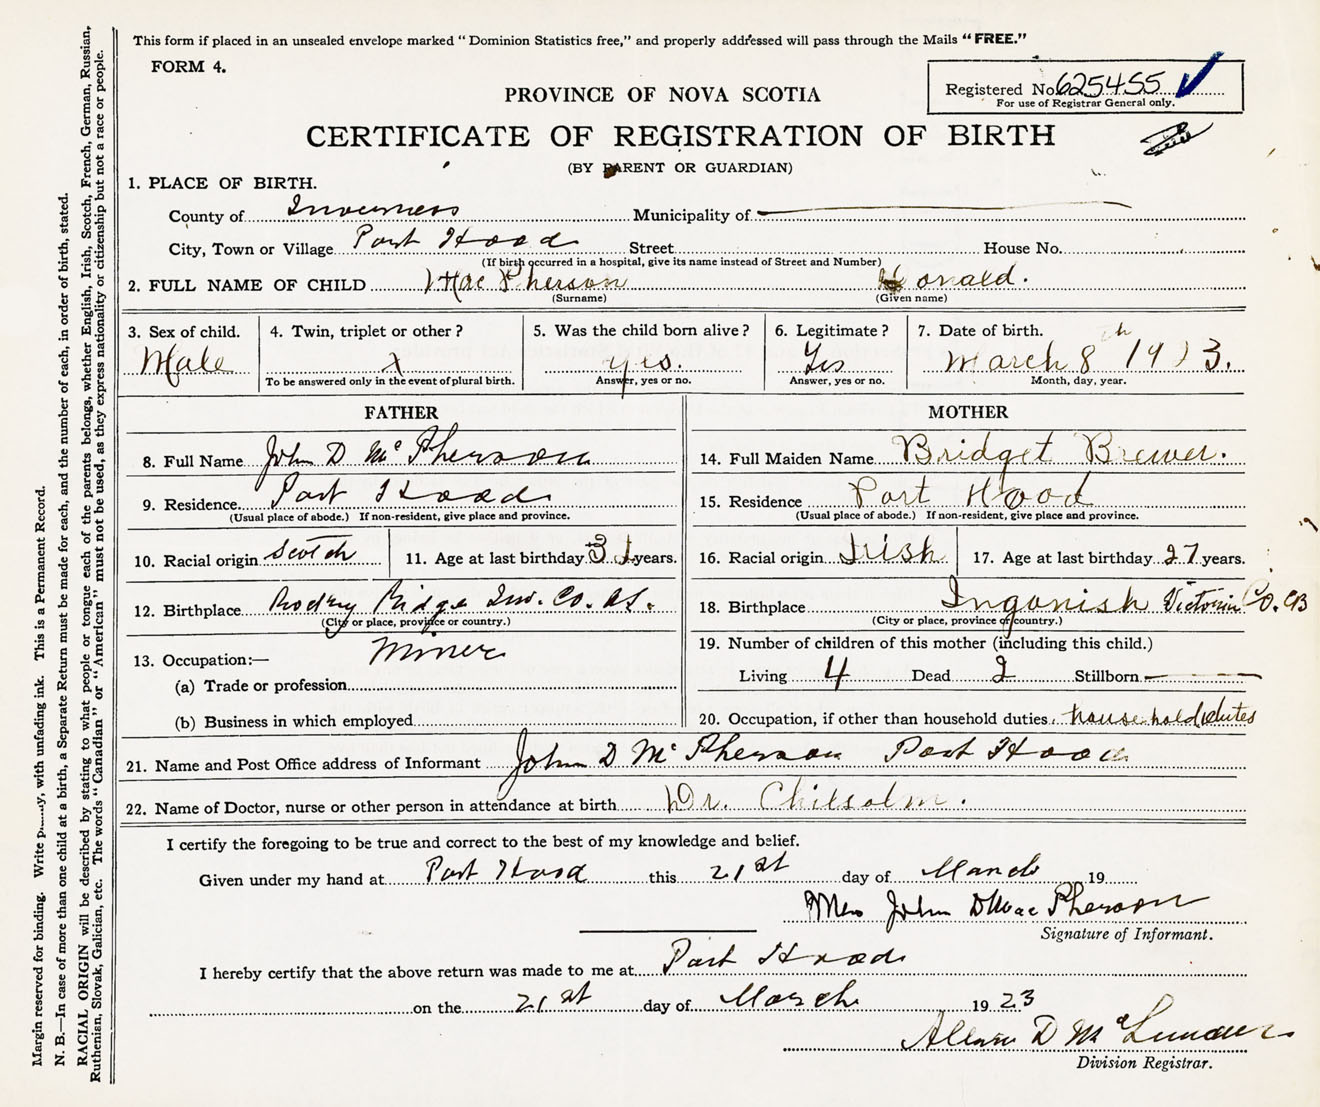 This form if placed in an unsealed envelope marked "Dominion Statistics free," and properly addressed will pass through the Mails "FREE."
FORM 4.
Registered No. 625455
For use of Registrar General only.
PROVINCE OF NOVA SCOTIA
CERTIFICATE OF REGISTRATION OF BIRTH
(BY PARENT OR GUARDIAN)
1. PLACE OF BIRTH.
County of Inverness Municipality of
City, Town or Village Port Hood Street House No.
(If birth occurred in a hospital, give its name instead of Street and Number)
2. FULL NAME OF CHILD MacPherson Donald.
(Surname) (Given name)
3. Sex of child. 4. Twin, triplet or other? 5. Was the child born alive? 6. Legitimate? 7. Date of birth.
Male x yes. Yes March 8th 1923.
To be answered only in the event of plural birth. Answer, yes or no. Answer, yes or no. Month, day, year.
FATHER
8. Full Name John D McPherson
9. Residence Port Hood
(Usual place of abode.) If non-resident, give place and province.
10. Racial origin Scotch 11. Age at last birthday 31 years.
12. Birthplace Ridge Inv. Co.
(City or place, province or country.)
13. Occupation:— Miner
(a) Trade or profession
(b) Business in which employed
MOTHER
14. Full Maiden Name Bridget Brewer.
15. Residence Port Hood
(Usual place of abode.) If non-resident, give place and province.
16. Racial origin Irish 17. Age at last birthday 27 years.
18. Birthplace Ingonish Victoria Co. CB
(City or place, province or country.)
19. Number of children of this mother (including this child.)
Living 4 Dead 2 Stillborn
20. Occupation, if other than household duties. household dutes
21. Name and Post Office address of Informant John D McPherson Port Hood
22. Name of Doctor, nurse or other person in attendance at birth Dr. Chilsolm.
I certify the foregoing to be true and correct to the best of my knowledge and belief.
Given under my hand at Port Hood this 21st day of March 19
Mrs John D MacPherson
Signature of Informant.
I hereby certify that the above return was made to me at Port Hood
on the 21st day of March 1923
D
Division Registrar.
Margin reserved for binding. Write with unfading ink. This is a Permanent Record.
N. B.—In case of more than one child at a birth, a Separate Return must be made for each, and the number of each, in order of birth, stated.
RACIAL ORIGIN will be described by stating to what people or tongue each of the parents belongs, whether English, Irish, Scotch, French, German, Russian,
Ruthenian, Slovak, Galician, etc. The words "Canadian" or "American" must not be used, as they express nationality or citizenship but not a race or people.